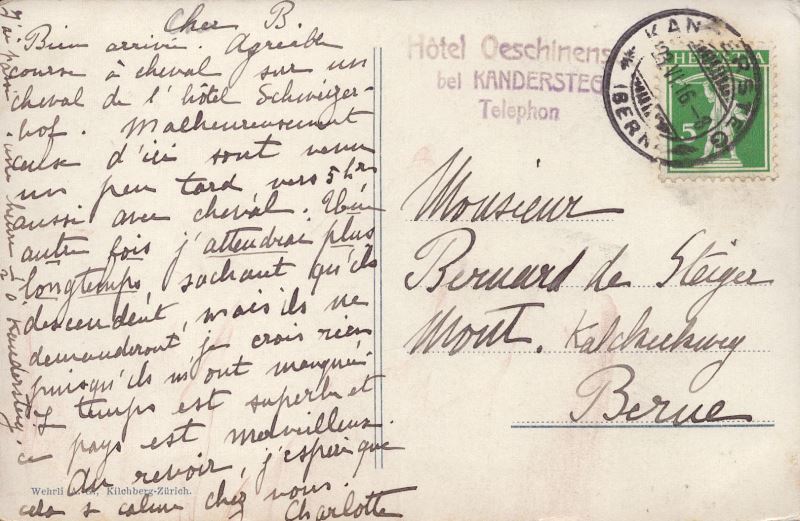 Cher B
Bien arrivé. Agréable
course à cheval sur un
cheval de l'hôtel Schweizer-
hof. Malheureusement
ceux d'ici sont venu
un peu tard, vers 5 hrs
aussi avec cheval. Une
autre fois j'attendrai plus
longtemps, sachant qu'ils
descendent, mais ils ne
demanderont, je crois rien
puisqu'ils m'ont manqué.
Le temps est superbe et
ce pays est merveilleux.
Au revoir, j'espère que
cela se calme chez vous.
Charlotte
J'ai passé une heure à Kandersteg.
Wehrli A. G., Kilchberg-Zürich.
Hôtel Oeschinensee
bei KANDERSTEG
Telephon
KANDERSTEG
(BERN)
VII.16
HELVETIA
5
Monsieur
Bernard de Steiger
Mont. Kalcheckweg
Berne